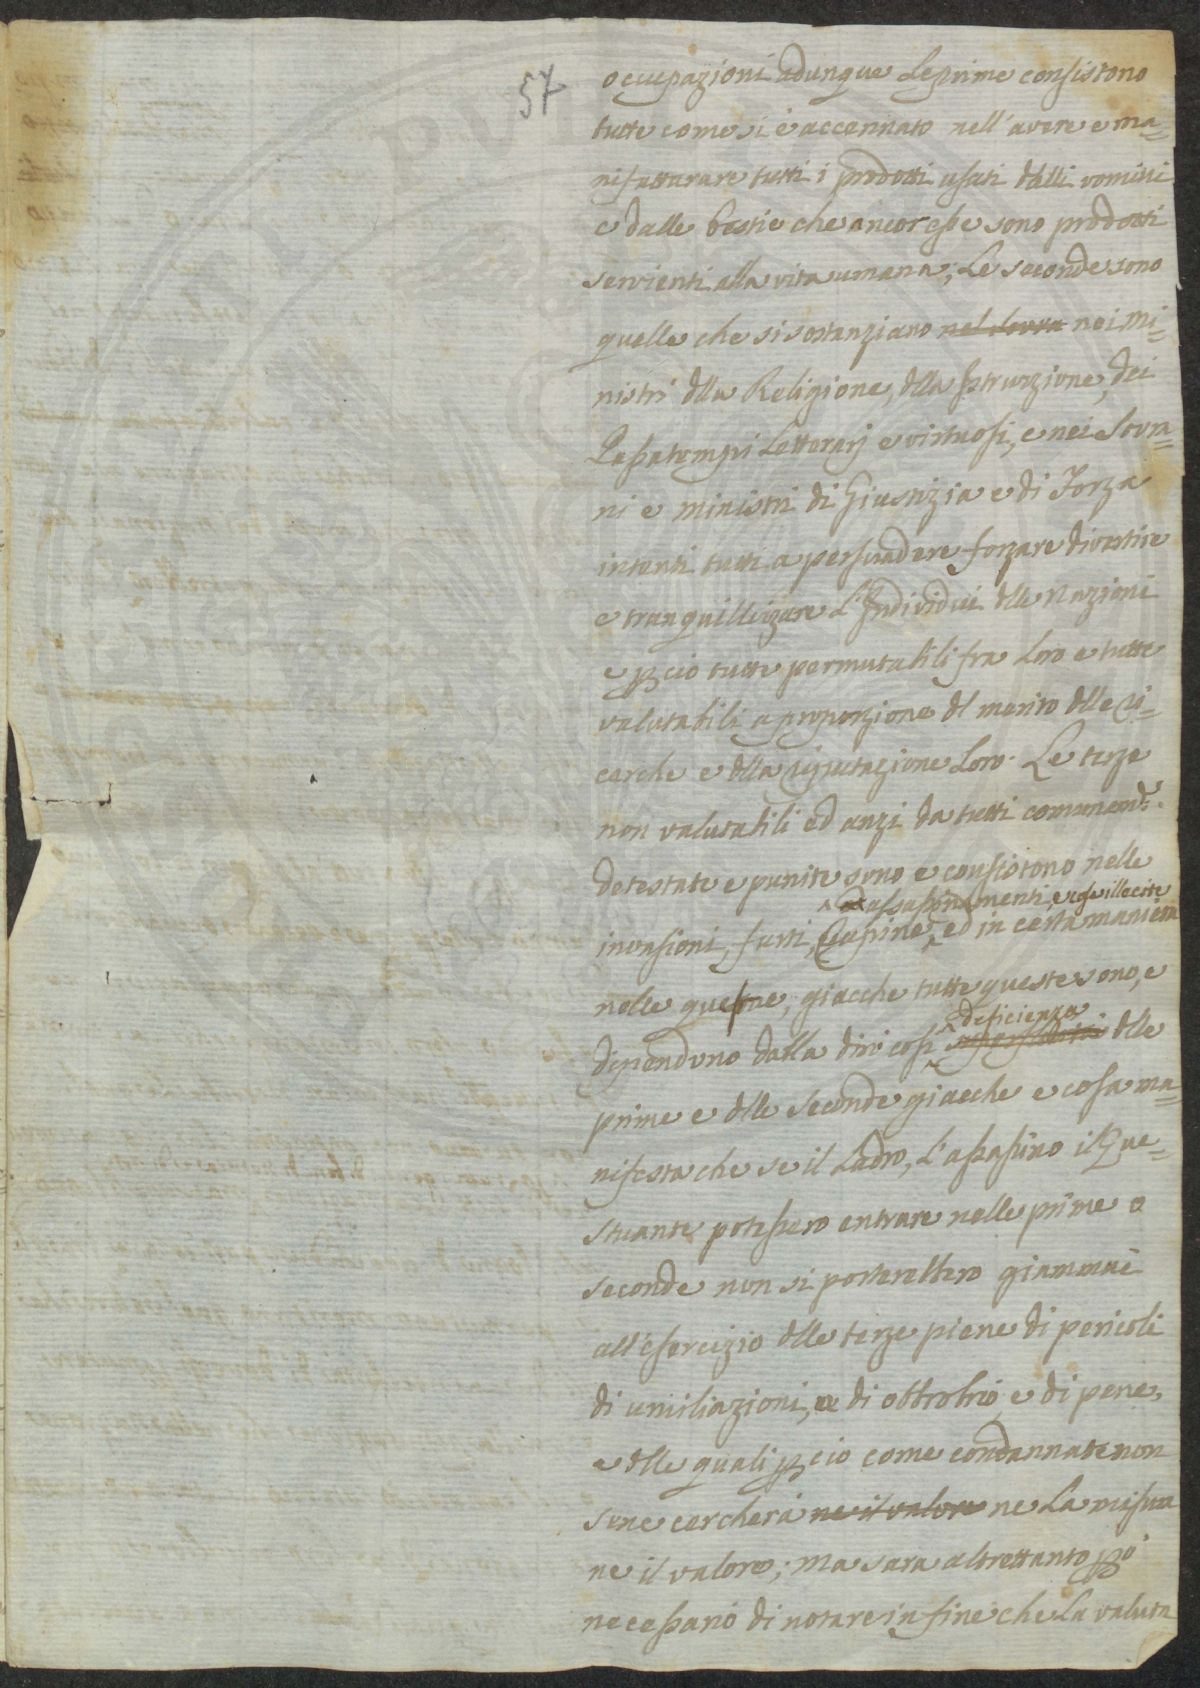 57
occupazioni adunque Le prime consistono
tutte come si è accennato nell'avere e ma=
nifatturare tutti i prodotti usati dalli uomini
e dalle bestie che ancor esse sono prodotti
servienti alla vita umana; Le seconde sono
quelle che si sostanziano nei Mi=
nistri dlla Religione, dlla Istruzione, dei
Passatempi Letterarj e virtuosi, e nei Sovra=
ni e ministri di Giustizia e di Forza
intenti tutti a persuadere forzare divertire
e tranquillizzare L'Individui dlle Nazioni
e pciò tutte permutabili fra Loro e tutte
valutabili a proporzione dl merito dlle ri=
cerche e dlla riputazione Loro. Le terze
non valutabili ed anzi da tutti comunemte.
detestate e punite sono e consistono nelle
assassinamenti, e cose illecite
invasioni, furti, Rapine, ed in certa maniera
nelle questue, giacche tutte queste sono, e
deficienza
dipendono dalla dirò così dlle
prime e dlle seconde giacche e cosa ma=
nifesta che se il Ladro, L'assassino il Que=
stuante potessero entrare nelle prime o
seconde non si porterebbero giammai
all'esercizio dlle terze piene di pericoli
di umiliazioni, di obbrobrio e di pene,
e dlle quali pciò come condannate non
se ne cercherà ne il valore ne La misura
ne il valore; ma sara altrettanto pò
necessario di notare in fine che La valuta